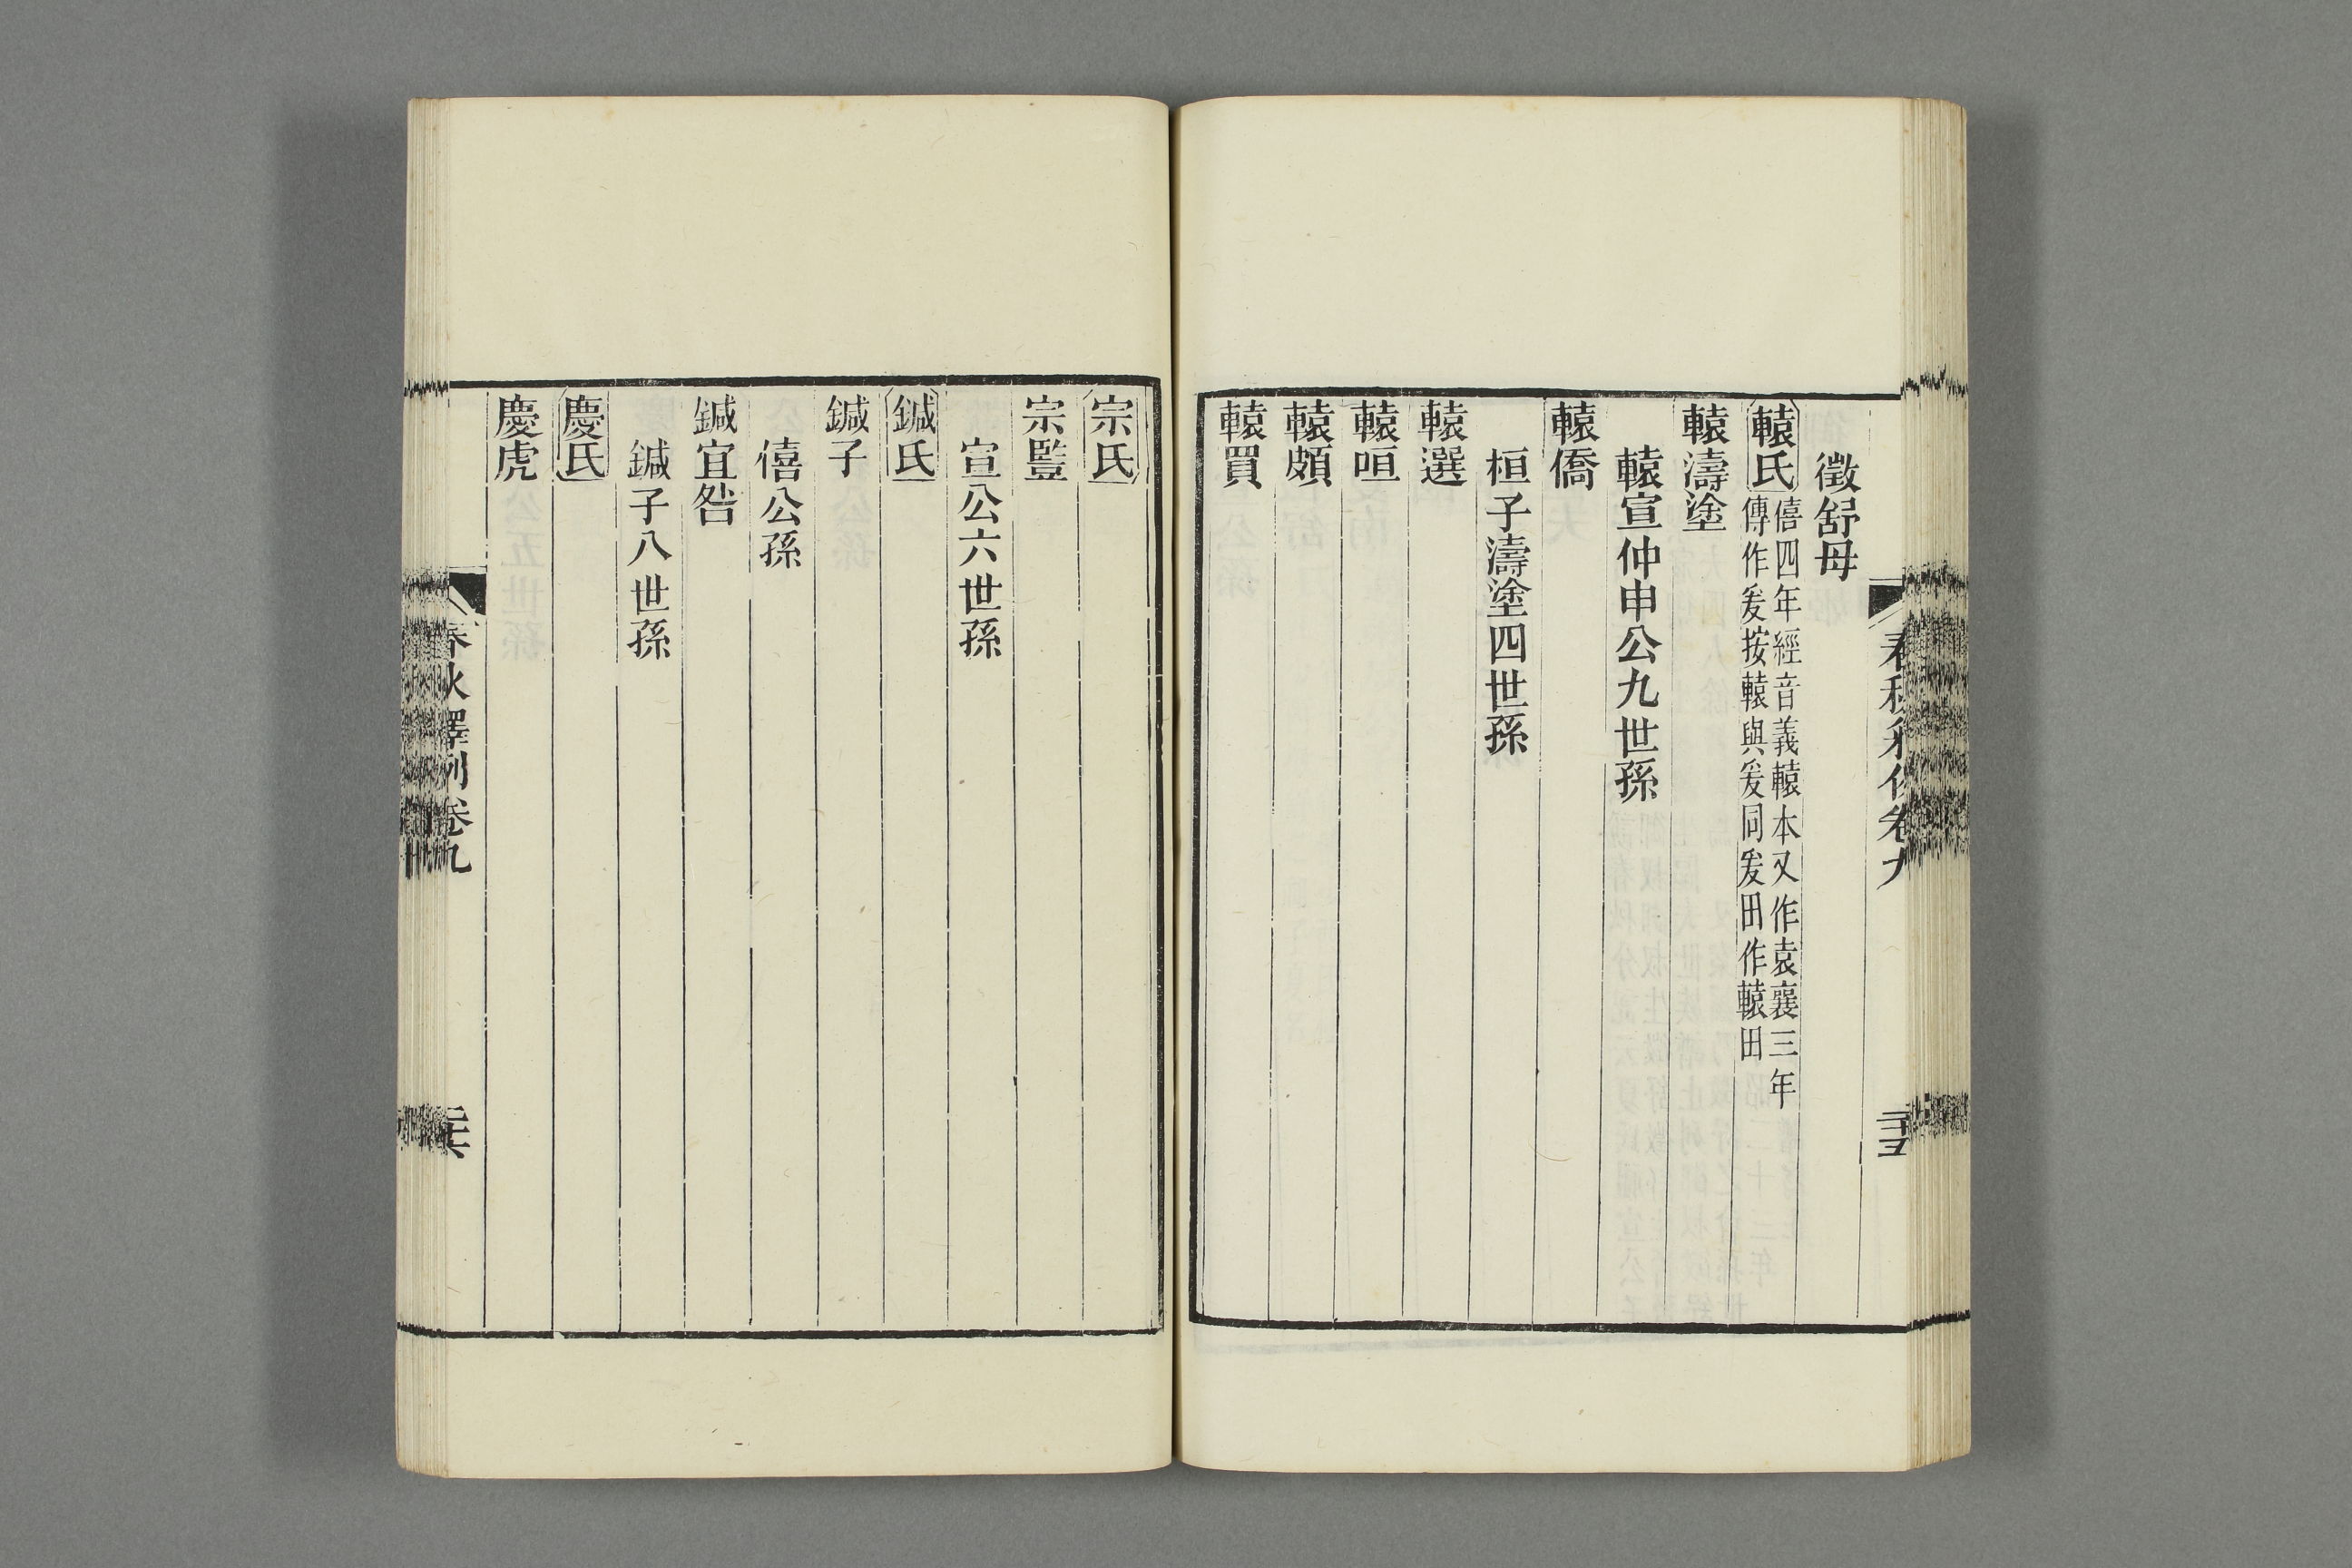 徵舒母
轅氏僖四年經音義轅本又作袁襄三年
傳作爰按轅與爰同爰田作轅田
轅濤塗
轅宣仲申公九世孫
轅僑
桓子濤塗四世孫
轅選
轅咺
轅頗
轅買
宗氏
宗豎
宣公六世孫
鍼氏
鍼子
僖公孫
鍼宜咎
鍼子八世孫
慶氏
慶虎
春秋釋例卷九